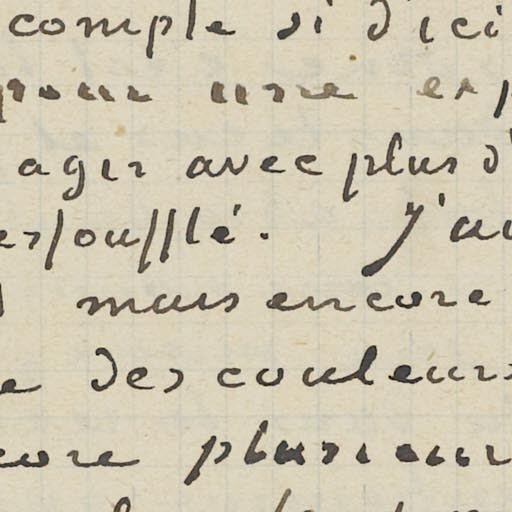 compte si d'ici
pour une exp
agir avec plus d'
essoufflé. J'au
mais encore
e des couleurs
core plusieur